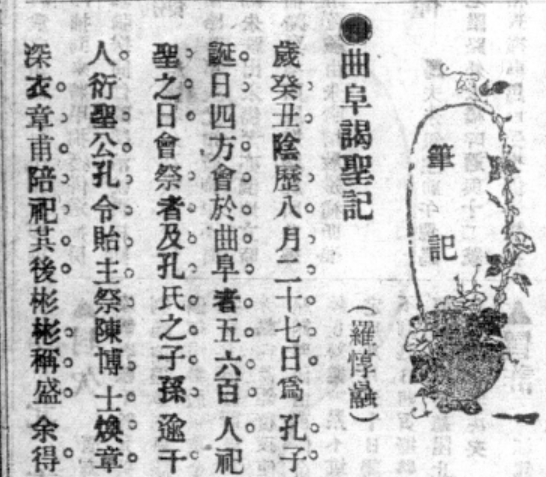 筆記
●曲阜謁聖記
（羅惇曧）
歲癸丑陰歷八月二十七日爲孔子
誕日四方會於曲阜者五六百人祀
聖之日會祭者及孔氏之子孫逾千
人衍聖公孔令貽主祭陳博士煥章
深衣章甫陪祀其後彬彬稱盛余得